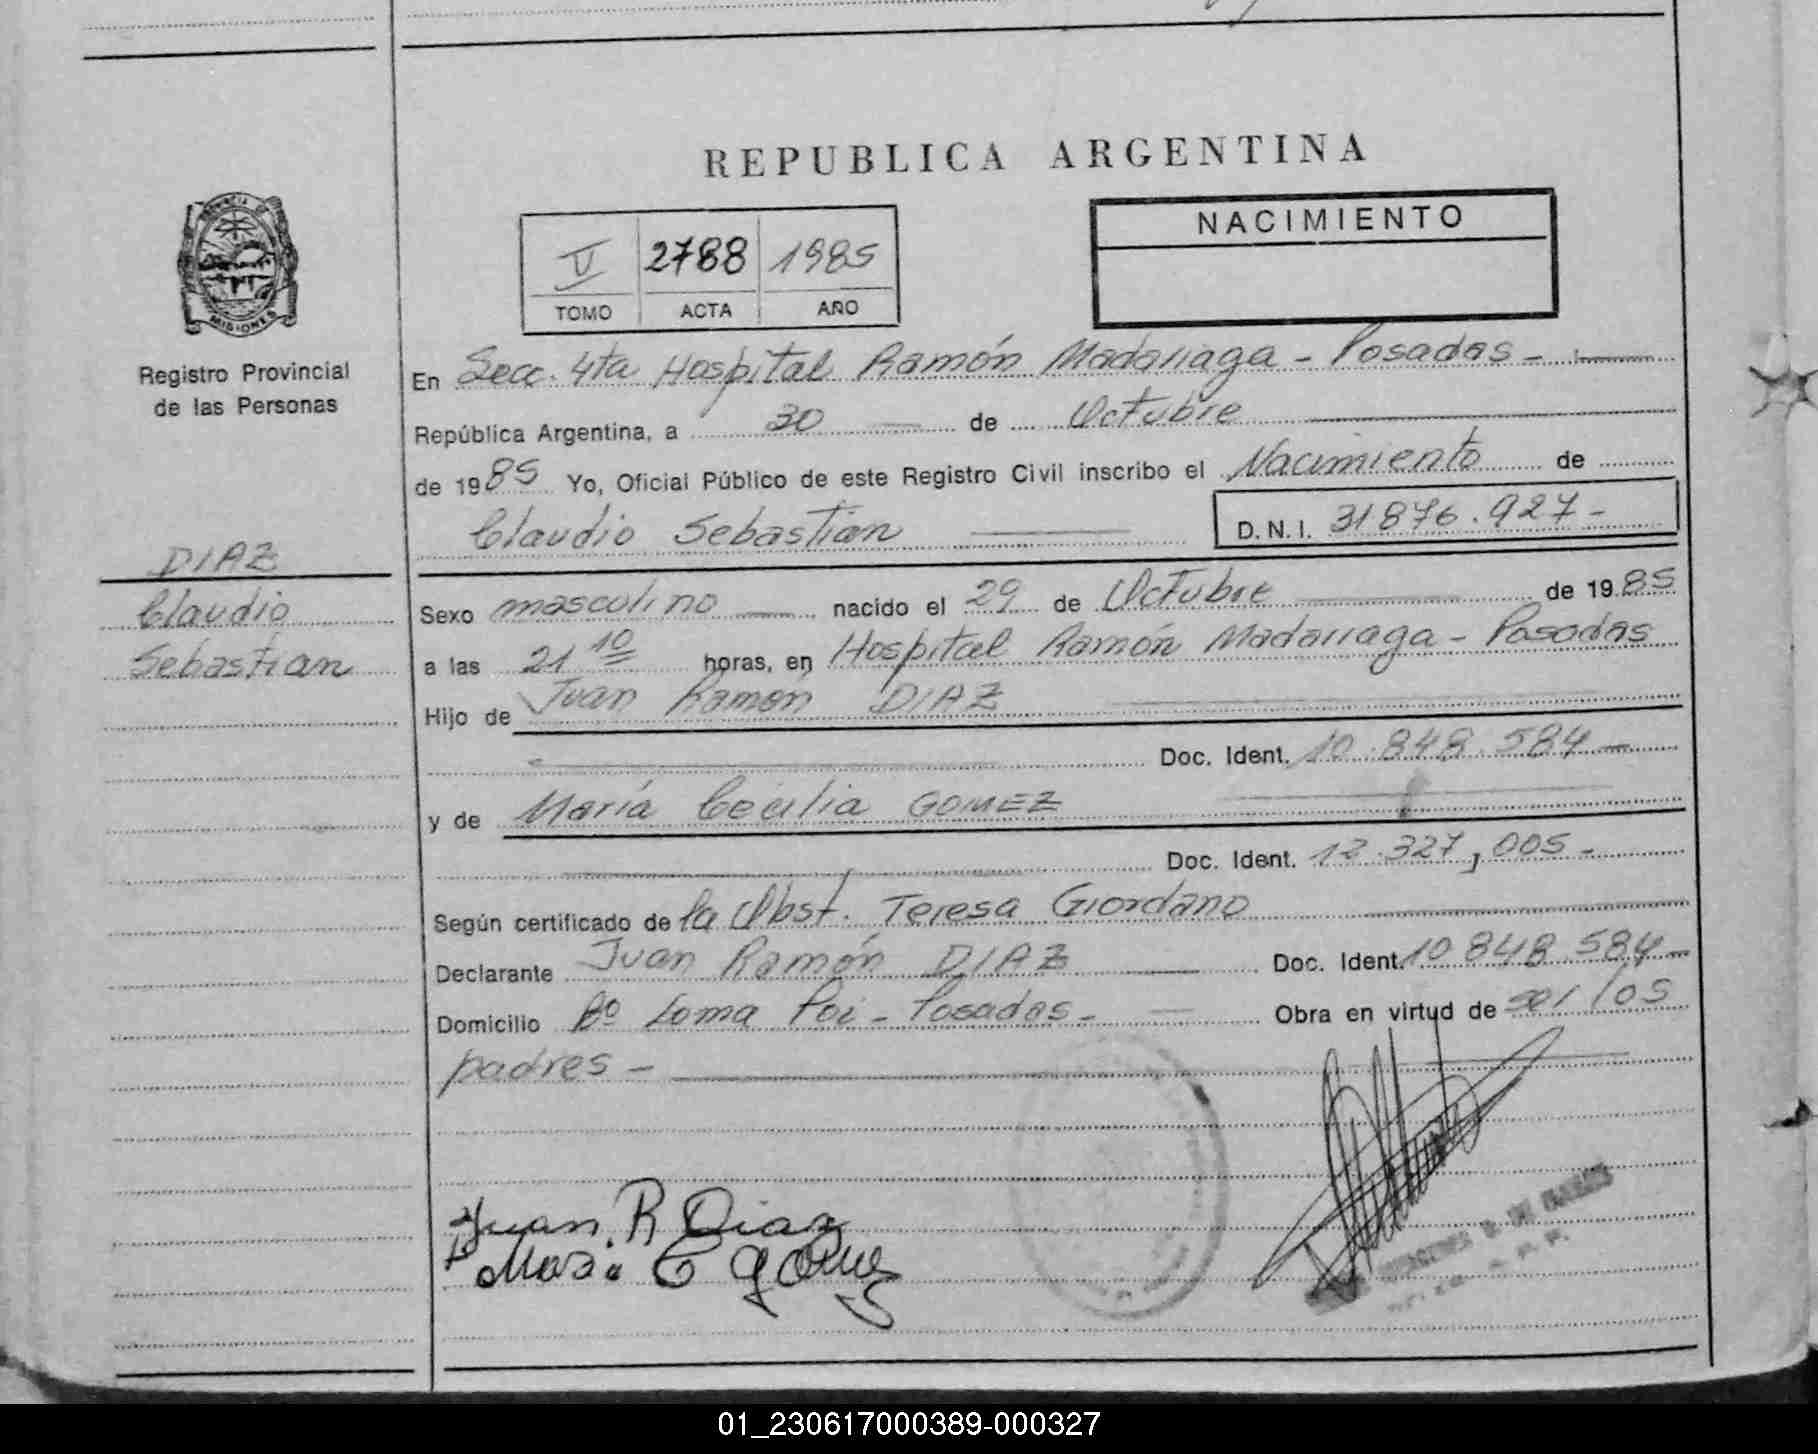 REPUBLICA ARGENTINA
PROVINCIA DE
MISIONES
Registro Provincial
de las Personas
V 2788 1985
TOMO ACTA AÑO
NACIMIENTO
En Secc. 4ta Hospital Ramón Madariaga - Posadas -
República Argentina, a 30 de Octubre
de 1985 Yo, Oficial Público de este Registro Civil inscribo el Nacimiento de
Claudio Sebastián D.N.I. 31876.927-
DIAZ
Claudio
Sebastian
Sexo masculino nacido el 29 de Octubre de 1985
a las 21 10 horas, en Hospital Ramón Madariaga - Posadas
Hijo de Juan Ramón DIAZ
Doc. Ident. 10.848.584-
y de María Cecilia GOMEZ
Doc. Ident. 12.327,005-
Según certificado de la Obst. Teresa Giordano
Declarante Juan Ramón DIAZ Doc. Ident. 10.848.584-
Domicilio Bº Loma Poi - Posadas - Obra en virtud de ser los
padres -
Juan R Diaz
Maria C Gomez
01_230617000389-000327